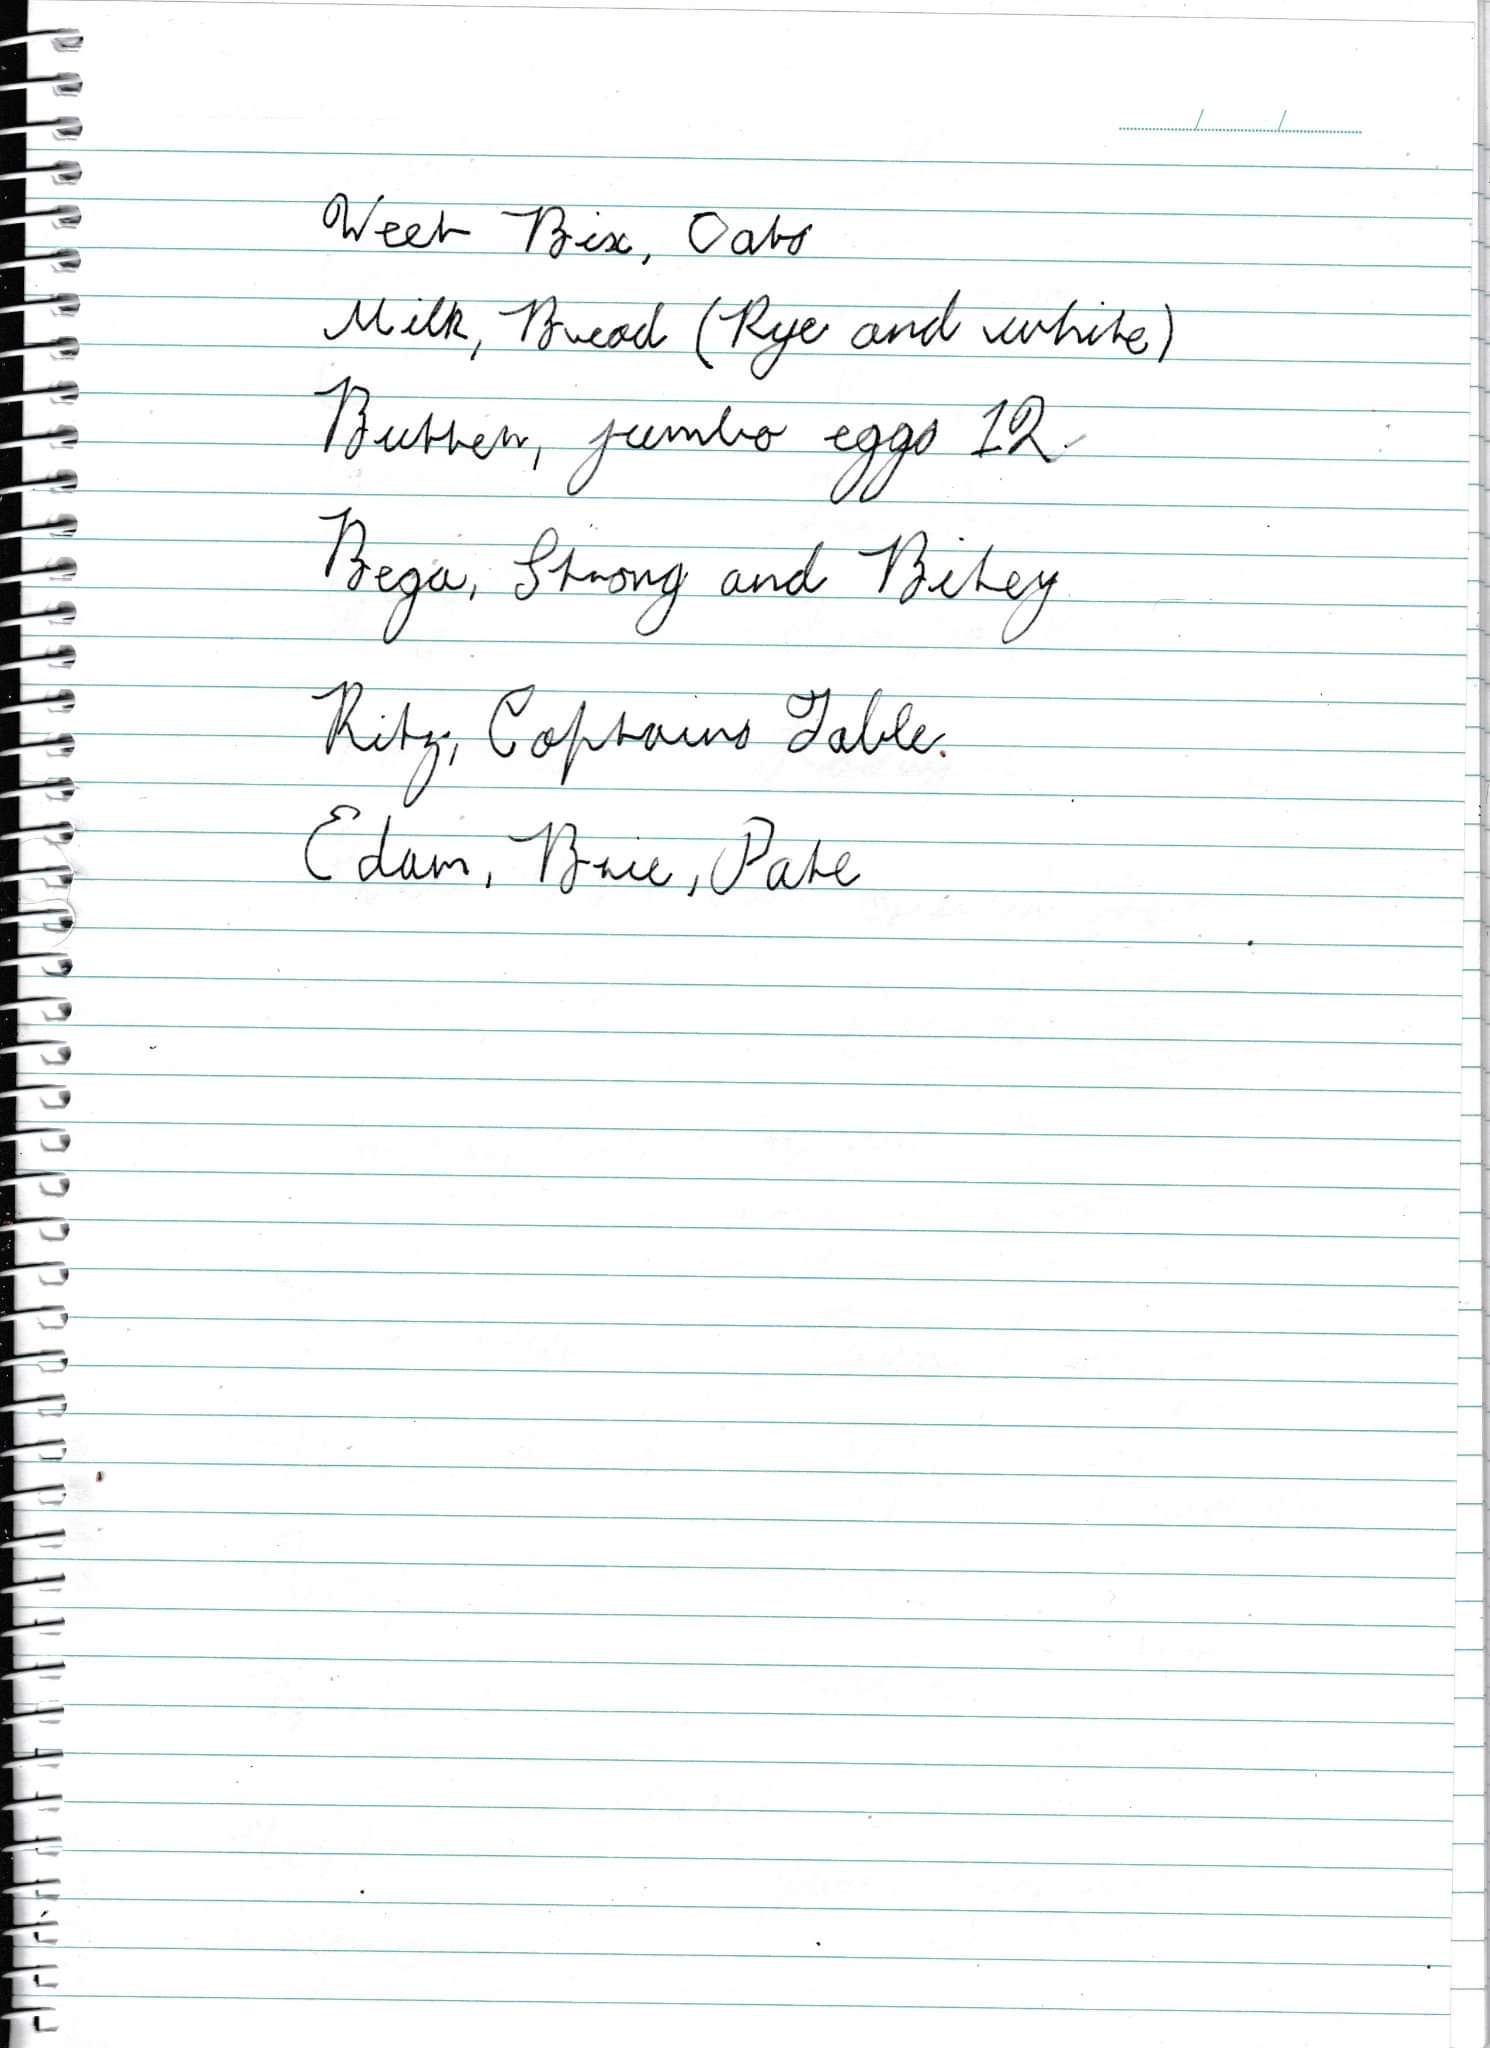 Weet Bix, Oats
Milk, Bread (Rye and white)
Butter, jumbo eggs 12
Bega, Strong and Bitey
Ritz, Captains Table.
Edam, Brie, Pate